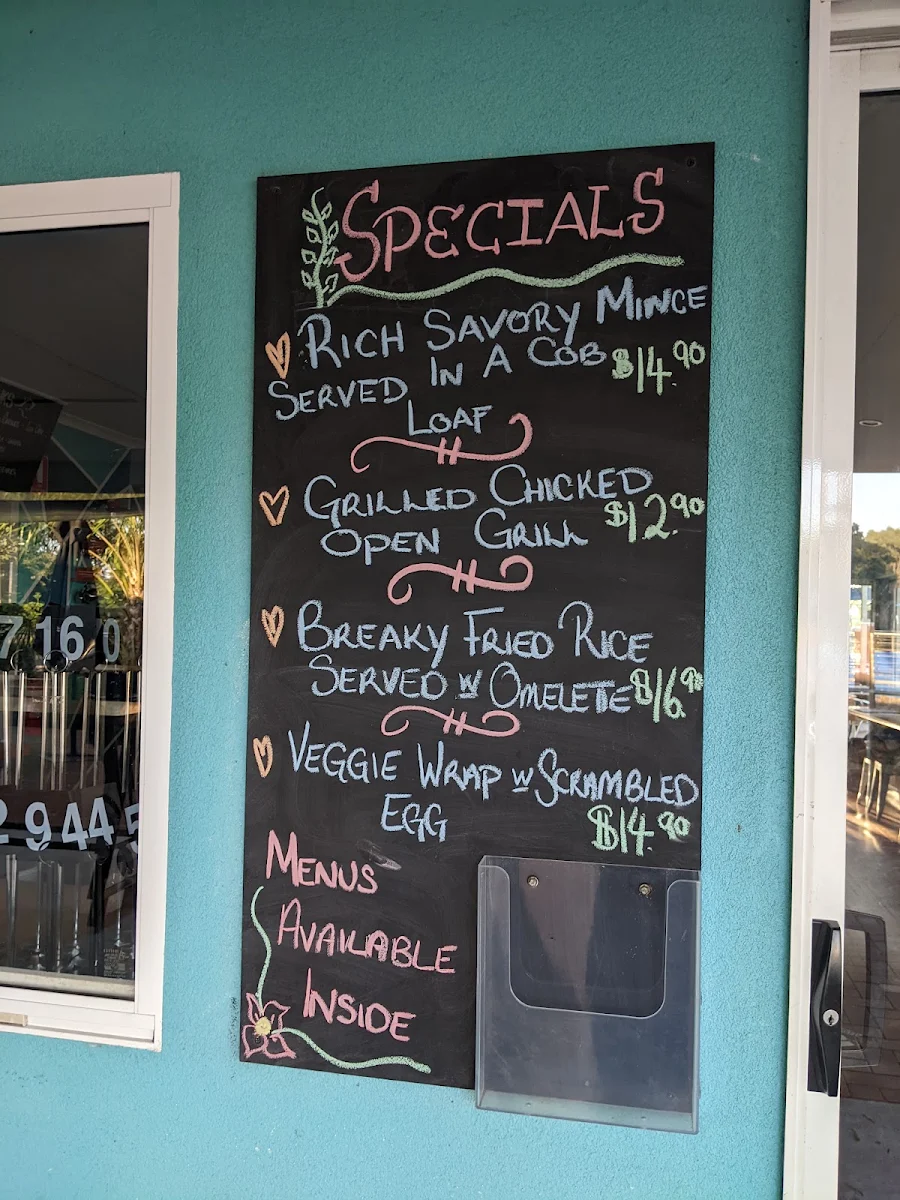 SPECIALS
RICH SAVORY MINCE
SERVED IN A COB $14.90
LOAF
GRILLED CHICKED
OPEN GRILL $12.90
BREAKY FRIED RICE
SERVED W OMELETE $16.90
VEGGIE WRAP W SCRAMBLED
EGG
$14.90
MENUS
AVAILABLE
INSIDE
7160
2944